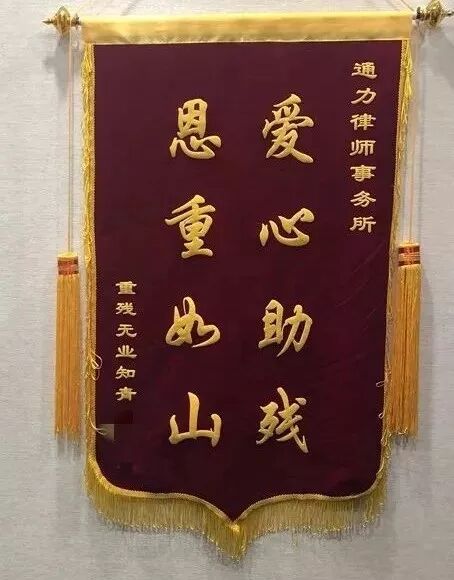 通力律师事务所
爱心助残
恩重如山
重残无业知青